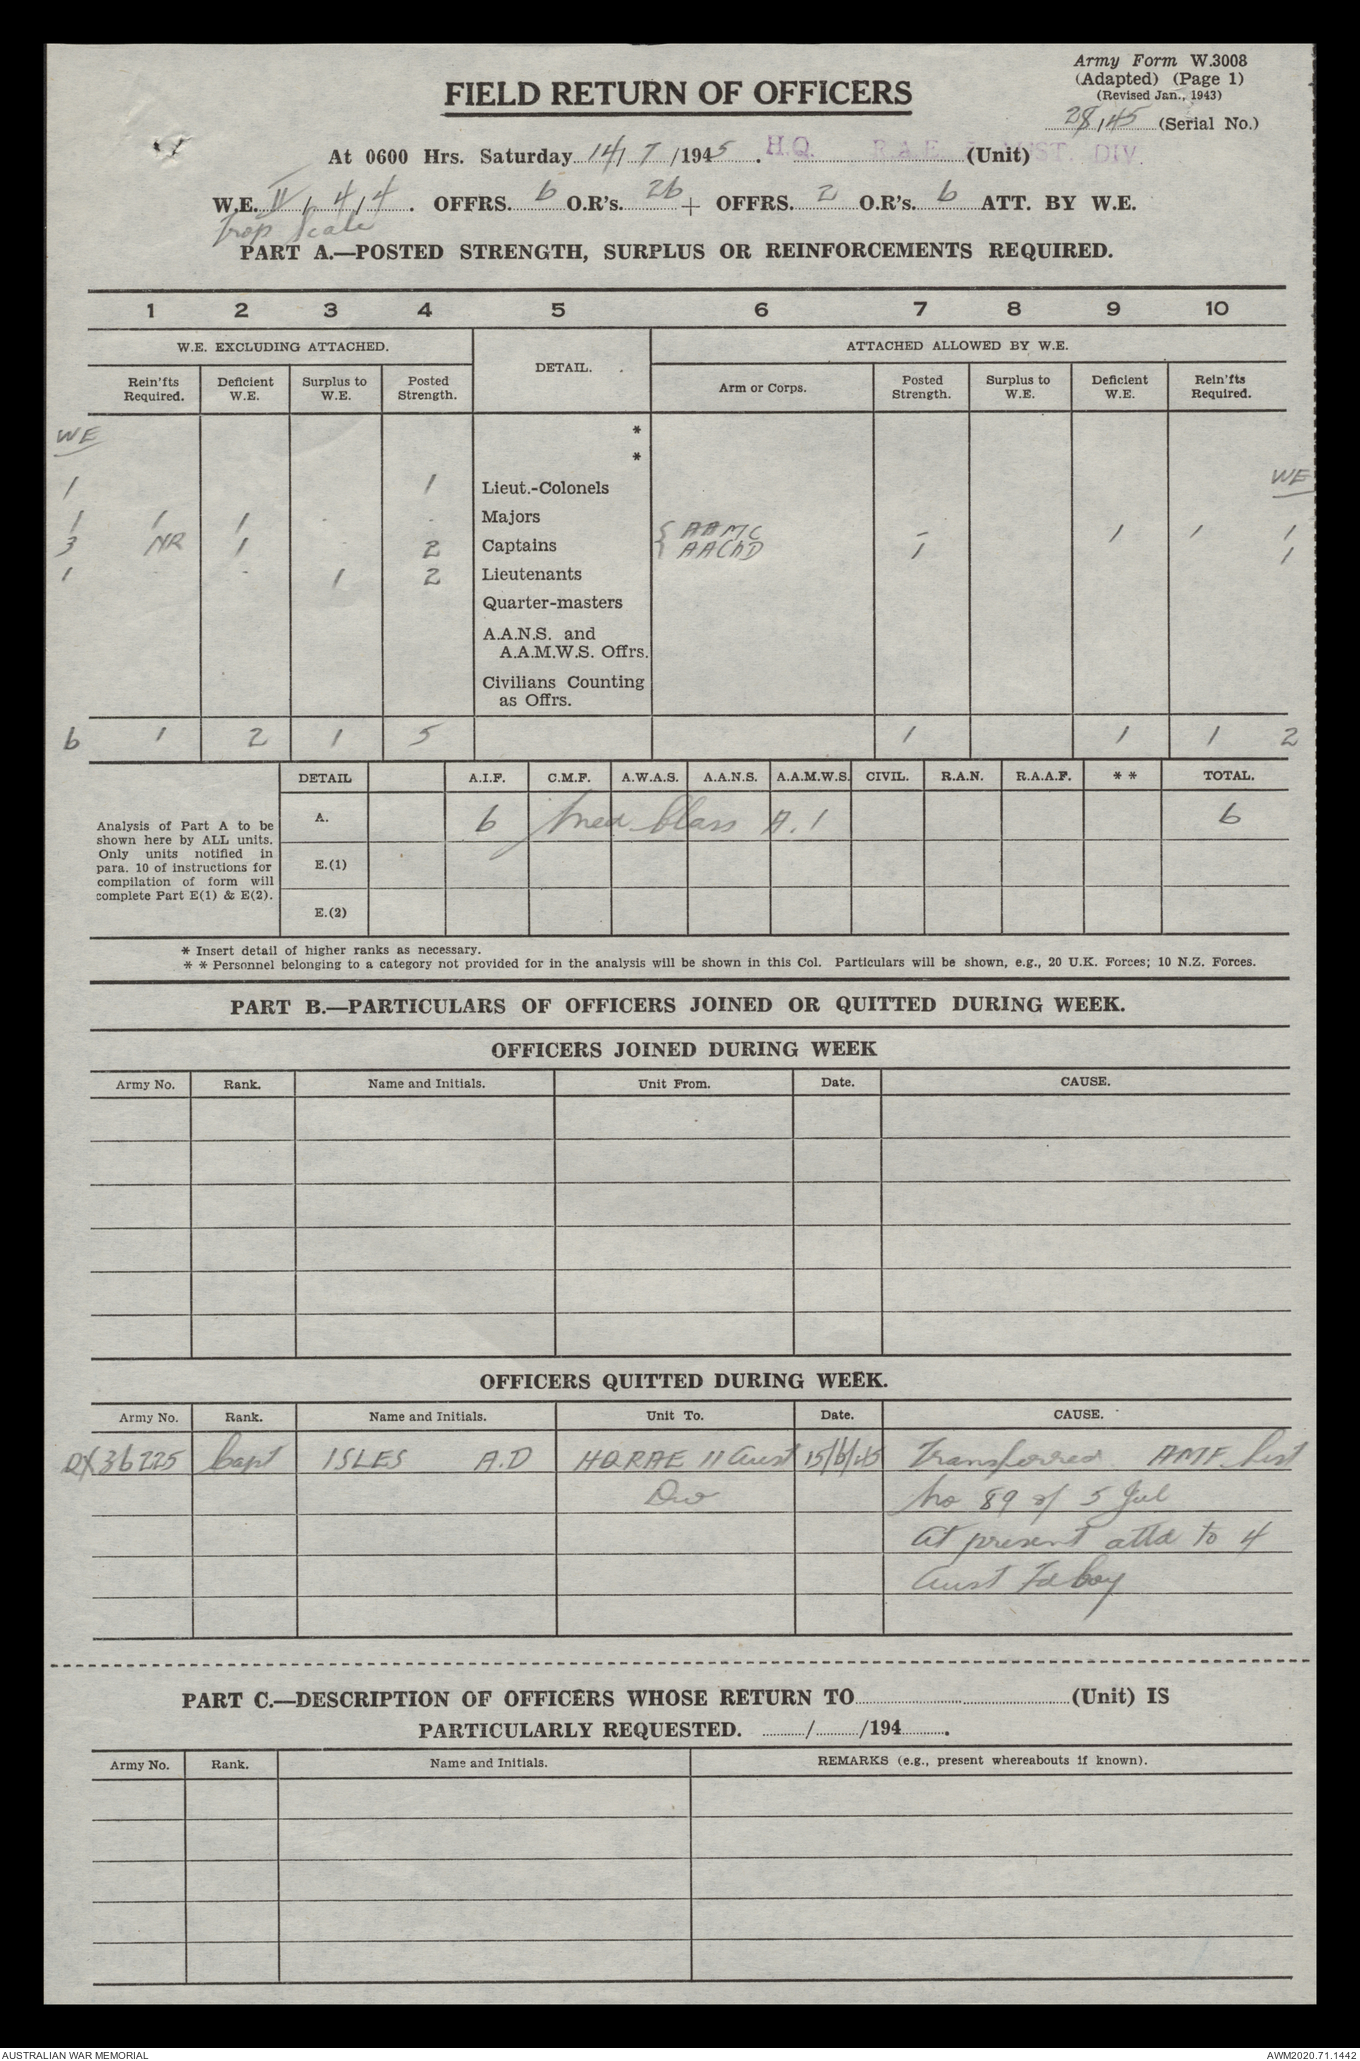 Army Form W.3008
(Adapted) (Page 1)
(Revised Jan., 1943)
28/45 (Serial No.)
FIELD RETURN OF OFFICERS
At 0600 Hrs. Saturday 14/7/1945. H.Q. R.A.E. AUST. DIV. (Unit)
W.E. IV/4/4. OFFRS. 6 O.R's. 26 + OFFRS. 2 O.R's. 6 ATT. BY W.E.
Trop Scale
PART A.—POSTED STRENGTH, SURPLUS OR REINFORCEMENTS REQUIRED.
1 2 3 4 5 6 7 8 9 10
W.E. EXCLUDING ATTACHED. DETAIL. ATTACHED ALLOWED BY W.E.
Rein'fts Required. Deficient W.E. Surplus to W.E. Posted Strength. Arm or Corps. Posted Strength. Surplus to W.E. Deficient W.E. Rein'fts Required.
WE *
*
WE
1 1 Lieut.-Colonels
1 1 1 - - Majors { AAMC - 1 1 1
3 NR 1 2 Captains AAChD 1 1
1 - 1 2 Lieutenants
Quarter-masters
A.A.N.S. and
A.A.M.W.S. Offrs.
Civilians Counting
as Offrs.
6 1 2 1 5 1 1 1 2
DETAIL A.I.F. C.M.F. A.W.A.S. A.A.N.S. A.A.M.W.S. CIVIL. R.A.N. R.A.A.F. * * TOTAL.
Analysis of Part A to be
shown here by ALL units.
Only units notified in
para. 10 of instructions for
compilation of form will
complete Part E(1) & E(2).
A. 6 Med Class A.1 6
E.(1)
E.(2)
* Insert detail of higher ranks as necessary.
* * Personnel belonging to a category not provided for in the analysis will be shown in this Col. Particulars will be shown, e.g., 20 U.K. Forces; 10 N.Z. Forces.
PART B.—PARTICULARS OF OFFICERS JOINED OR QUITTED DURING WEEK.
OFFICERS JOINED DURING WEEK
Army No. Rank. Name and Initials. Unit From. Date. CAUSE.
OFFICERS QUITTED DURING WEEK.
Army No. Rank. Name and Initials. Unit To. Date. CAUSE.
QX36225 Capt ISLES A.D HQRAE 11 Aust 15/6/45 Transferred AMF List
Div No 89 of 5 Jul
At present attd to 4
Aust Fd Coy
PART C.—DESCRIPTION OF OFFICERS WHOSE RETURN TO (Unit) IS
PARTICULARLY REQUESTED. / /194 .
Army No. Rank. Name and Initials. REMARKS (e.g., present whereabouts if known).
AUSTRALIAN WAR MEMORIAL AWM2020.71.1442